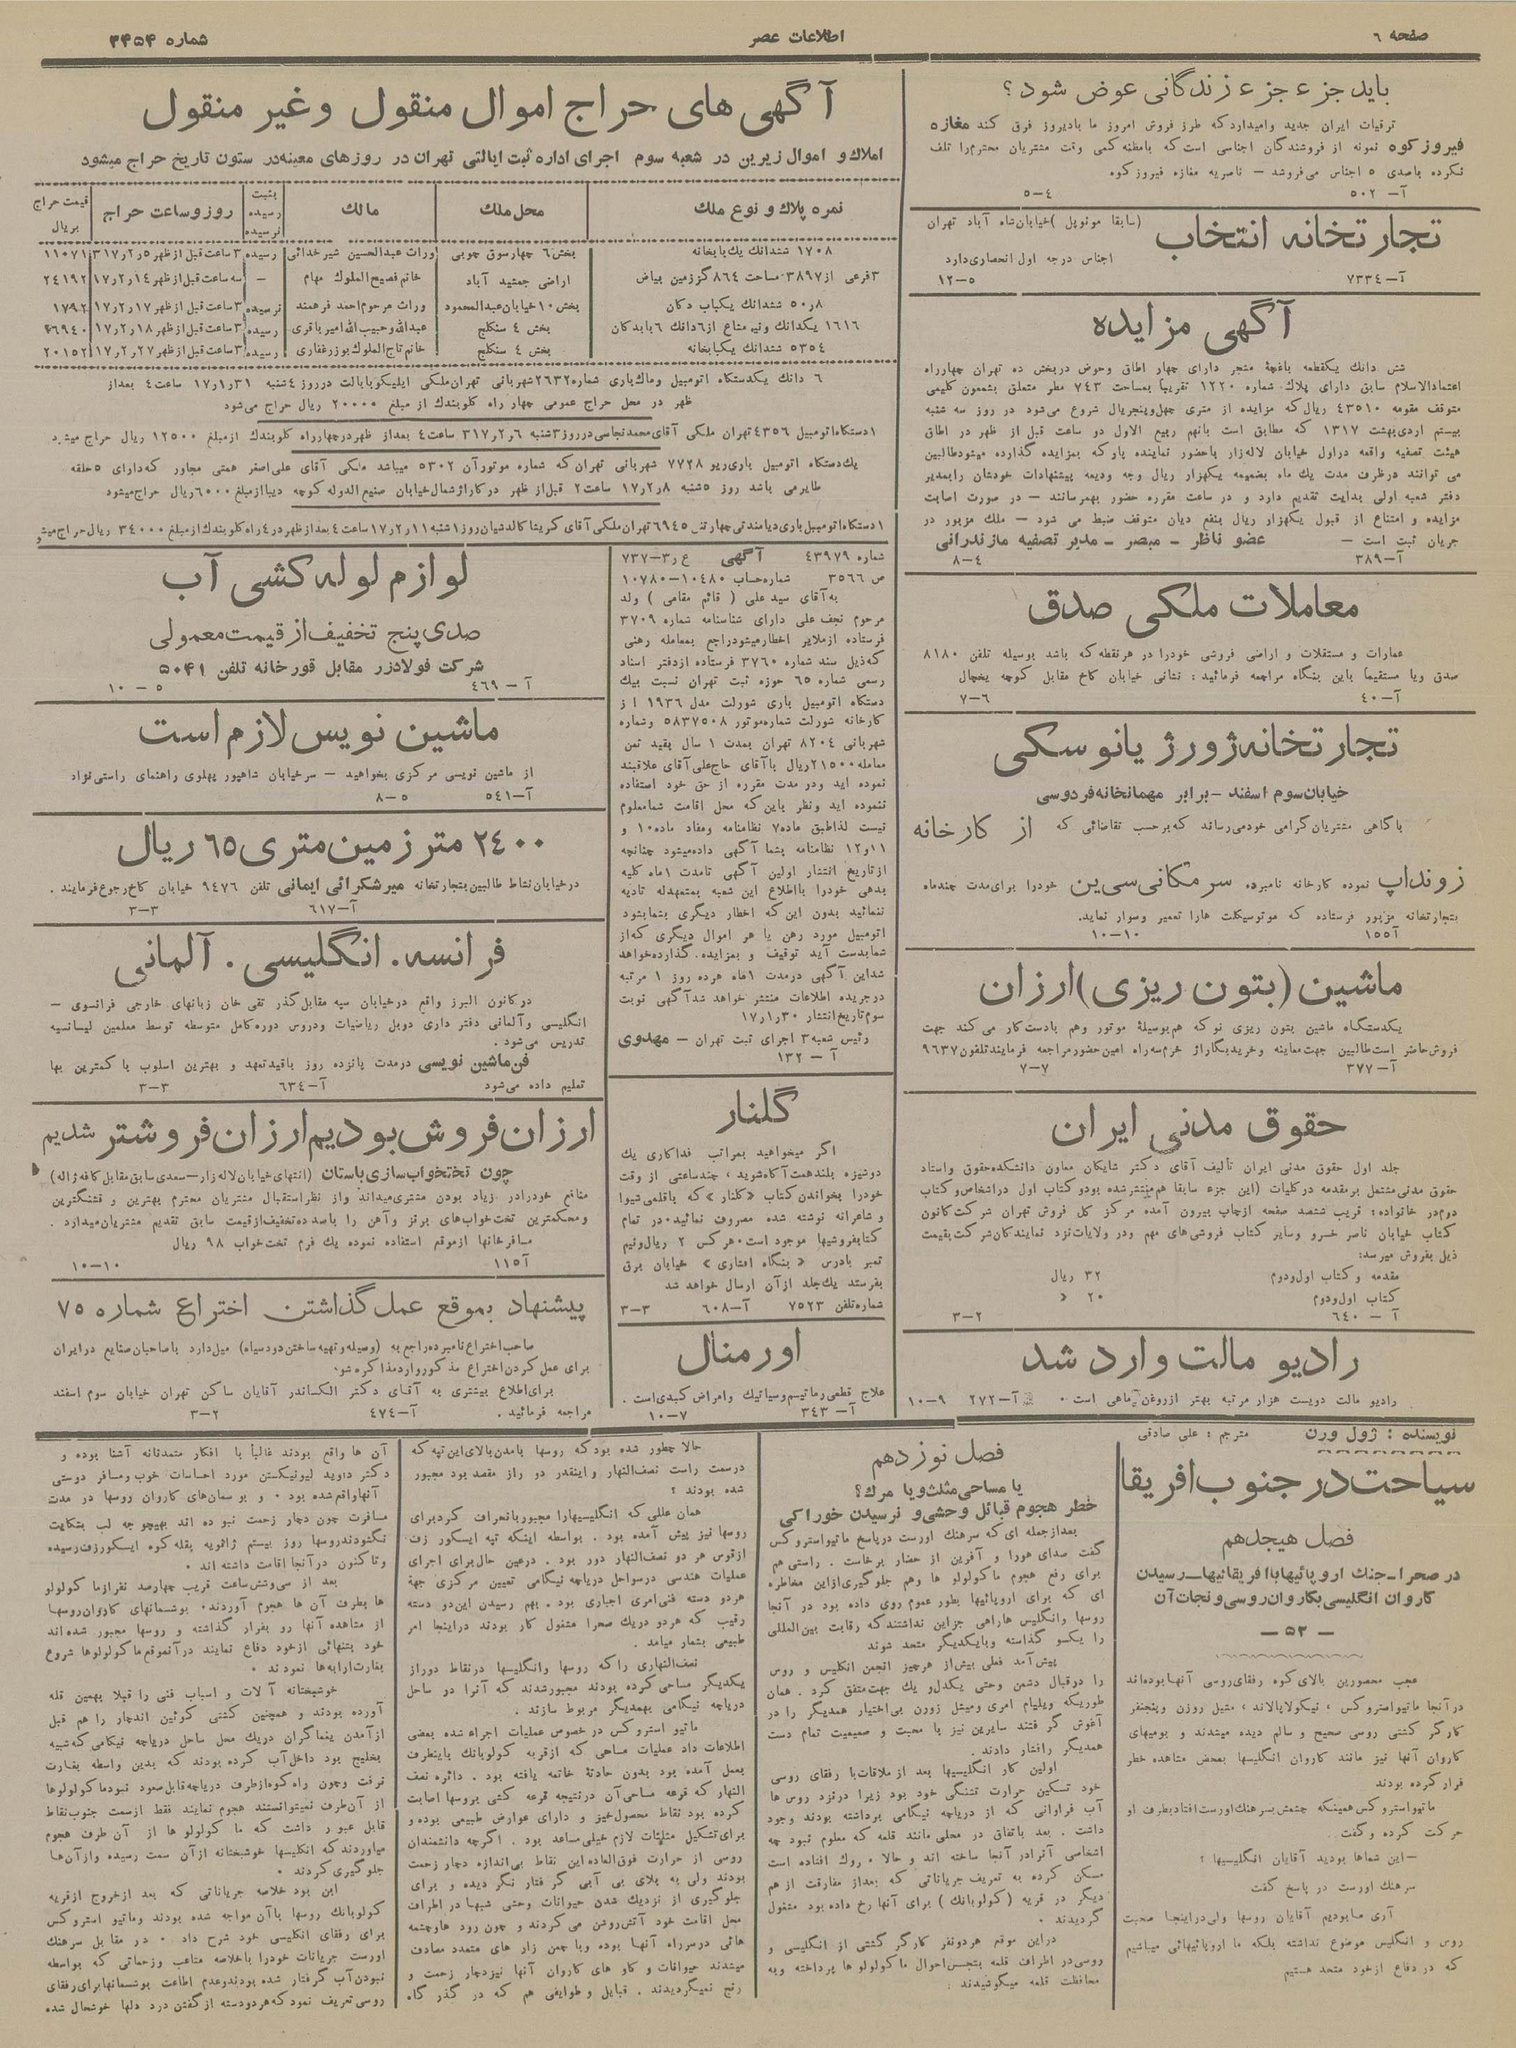 صفحه ٦
اطلاعات عصر
شماره ٣٤٥٤
باید جزء جزء زندگانی عوض شود؟
ترقیات ایران جدید وامیدارد که طرز فروش امروز ما بادیروز فرق کند مغازه
فیروز کوه نمونه از فروشندگان اجناسی است که بامظنه کمی وقت مشتریان محترم را تلف
نکرده باصدی ٥ اجناس می‌فروشد – ناصریه مغازه فیروز کوه
آ– ٥٠٢ ٤–٥
تجارتخانه انتخاب
(سابقا مونوپل) خیابان شاه آباد تهران
اجناس درجه اول انحصاری دارد
آ–٧٣٣٤ ٥–١٢
آگهی مزایده
شش دانك یکقطعه باغچۀ مشجر دارای چهار اطاق وحوض در بخش ده تهران چهارراه
اعتمادالاسلام سابق دارای پلاك شماره ١٢٢٠ تقریباً بمساحت ٧٤٣ مطر متعلق بشمعون کلیمی
متوقف مقومه ٤٣٥١٠ ریال که مزایده از متری چهل وپنجریال شروع می‌شود در روز سه شنبه
بیستم اردی‌بهشت ١٣١٧ که مطابق است بانهم ربیع الاول دو ساعت قبل از ظهر در اطاق
هیئت تصفیه واقعه دراول خیابان لاله‌زار باحضور نماینده پارکه بمزایده گذارده میشود طالبین
می توانند درظرف مدت یك ماه بضمیمه یکهزار ریال وجه ودیعه پیشنهادات خودشان رابمدیر
دفتر شعبه اولی بدایت تقدیم دارد و در ساعت مقرره حضور بهمرسانند – در صورت اصابت
مزایده و امتناع از قبول یکهزار ریال بنفع دیان متوقف ضبط می شود – ملك مزبور در
جریان ثبت است – عضو ناظر – مبصر – مدیر تصفیه مازندرانی
آ–٣٨٩ ٤–٨
معاملات ملکی صدق
عمارات و مستقلات و اراضی فروشی خودرا در هر نقطه که باشد بوسیله تلفن ٨١٨٠
صدق ویا مستقیماً باین بنگاه مراجعه فرمائید: نشانی خیابان کاخ مقابل کوچه یخچال
آ–٤٠ ٦–٧
تجارتخانه ژورژ یانوسکی
خیابان سوم اسفند – برابر مهمانخانه فردوسی
باگاهی مشتریان گرامی خودمی‌رساند که برحسب تقاضائی که از کارخانه
زونداپ نموده کارخانه نامبرده سر مکانی سی‌ین خودرا برای مدت چندماه
بتجارتخانه مزبور فرستاده که موتوسیکلت هارا تعمیر وسوار نماید.
آ١٥٥ ١٠–١٠
ماشین (بتون ریزی) ارزان
یکدستگاه ماشین بتون ریزی نو که هم بوسیلۀ موتور وهم بادست کار می کند جهت
فروش حاضر است طالبین جهت معاینه وخرید بگاراژ خرم سه راه امین حضور مراجعه فرمایند تلفون ٩٦٣٧
آ–٣٧٧ ٧–٧
حقوق مدنی ایران
جلد اول حقوق مدنی ایران تألیف آقای دکتر شایگان معاون دانشکده حقوق واستاد
حقوق مدنی مشتمل بر مقدمه در کلیات (این جزء سابقا هم منتشر شده بود و کتاب اول در اشخاص و کتاب
دوم در خانواده: قریب ششصد صفحه ازچاپ بیرون آمده مرکز کل فروش تهران شرکت کانون
کتاب خیابان ناصر خسرو وسایر کتاب فروشی‌های مهم ودر ولایات نزد نمایندگان شرکت بقیمت
ذیل بفروش میرسد:
مقدمه و کتاب اول‌ودوم ٣٢ ریال
کتاب اول‌ودوم ٢٠ »
آ – ٦٤٠ ٢–٣
رادیو مالت وارد شد
رادیو مالت دویست هزار مرتبه بهتر ازروغن ماهی است ٠ آ–٢٧٢ ٩–١٠
آگهی های حراج اموال منقول وغیر منقول
املاك و اموال زیرین در شعبه سوم اجرای اداره ثبت ایالتی تهران در روزهای معینه در ستون تاریخ حراج میشود
نمره پلاك و نوع ملك محل ملك مالك روز وساعت حراج بثبت رسیده نرسیده قیمت حراج بریال
١٧٠٨ ششدانك یك‌بابخانه بخش ٦ چهارسوق چوبی وراث عبدالحسین شیر خدائی رسیده ٣ ساعت قبل از ظهر ٥ر٢ر٣١٧ ١١٠٧١
٣ فرعی از ٣٨٩٧ مساحت ٨٦٤ گز زمین بیاض اراضی جمشید آباد خانم فصیح‌الملوك مهام – سه ساعت قبل از ظهر ١٤ر٢ر١٧ ٢٤١٩٢
٨ر٥٠ ششدانك یکباب دکان بخش ١٠ خیابان عبدالمحمود وراث مرحوم احمد فرهمند نرسیده ٣ ساعت قبل از ظهر ١٧ر٢ر١٧ ١٧٩٢
١٦١٦ یکدانك ونیم مشاع از ٦دانك ٦ بابدکان بخش ٤ سنگلج عبدالله وحبیب الله امیر باقری رسیده ٣ ساعت قبل از ظهر ١٨ر٢ر١٧ ٣٦٩٤٠
٥٣٥٤ ششدانك یکبابخانه بخش ٤ سنگلج خانم تاج‌الملوك بوزرغفاری رسیده ٣ ساعت قبل از ظهر ٢٧ر٢ر١٧ ٢٠١٥٢
٦ دانك یکدستگاه اتومبیل وماك باری شماره ٢٦٣٢ شهربانی تهران ملکی ایلیکو یا بالت در روز ٤ شنبه ٣١ر١ر١٧ ساعت ٤ بعداز
ظهر در محل حراج عمومی چهار راه کلوبندك از مبلغ ٢٠٠٠٠ ریال حراج می‌شود
١ دستگاه اتومبیل ٤٣٥٦ تهران ملکی آقای محمد نجاسی در روز ٣ شنبه ٦ر٢ر٣١٧ ساعت ٤ بعداز ظهر در چهارراه کلوبندك از مبلغ ١٢٥٠٠ ریال حراج میشود
یك دستگاه اتومبیل باری ریو ٧٧٢٨ شهربانی تهران که شماره موتور آن ٥٣٠٢ میباشد ملکی آقای علی اصغر همتی مجاور که دارای ٥ حلقه
طایر می باشد روز ٥ شنبه ٨ر٢ر١٧ ساعت ٢ قبل از ظهر در گاراژ شمال خیابان صنیع الدوله کوچه دیبا از مبلغ ٦٠٠٠ ریال حراج میشود
١ دستگاه اتومبیل باری دیامندتی چهارتنی ٦٩٤٥ تهران ملکی آقای کریشا کالدشیان روز ١ شنبه ١١ر٢ر١٧ ساعت ٤ بعداز ظهر در ٤راه کلوبندك از مبلغ ٣٤٠٠٠ ریال حراج میشو
شماره ٤٣٩٧٩ آگهی ع ر٣–٧٣٧
ص ٣٥٦٦ شماره حساب ١٠٤٨٠–١٠٧٨٠
به آقای سید علی (قائم مقامی) ولد
مرحوم نجف علی دارای شناسنامه شماره ٣٧٠٩
فرستاده از ملایر اخطار میشود راجع بمعامله رهنی
که ذیل سند شماره ٣٧٦٠ فرستاده از دفتر اسناد
رسمی شماره ٦٥ حوزه ثبت تهران نسبت بیك
دستگاه اتومبیل باری شورلت مدل ١٩٣٦ از
کارخانه شورلت شماره موتور ٥٨٣٧٥٠٨ وشماره
شهربانی ٨٢٠٤ تهران بمدت ١ سال بقید ثمن
معامله ٢١٥٠٠ ریال باآقای حاج علی آقای علاقبند
نموده اید ودر مدت مقرره از حق خود استفاده
ننموده اید ونظر باین که محل اقامت شما معلوم
نیست لذا طبق ماده٧ نظامنامه ومفاد ماده ١٠ و
١١و١٢ نظامنامه بشما آگهی داده میشود چنانچه
از تاریخ انتشار اولین آگهی تامدت ١ماه کلیه
بدهی خودرا بااطلاع این شعبه بمتعهدله تادیه
ننمائید بدون این که اخطار دیگری بشما بشود
اتومبیل مورد رهن یا هر اموال دیگری که از
شما بدست آید توقیف و بمزایده گذارده خواهد
شد این آگهی درمدت ١ماه هرده روز ١ مرتبه
درجریده اطلاعات منتشر خواهد شد آگهی نوبت
سوم تاریخ انتشار ٣٠ر١ر١٧
رئیس شعبه ٣ اجرای ثبت تهران – مهدوی
آ – ١٣٢
گلنار
اگر میخواهید بمراتب فداکاری یك
دوشیزه بلند همت آگاه شوید، چند ساعتی از وقت
خودرا بخواندن کتاب «گلنار» که باقلمی شیوا
و شاعرانه نوشته شده مصروف نمائید٠ در تمام
کتابفروشیها موجود است٠ هرکس ٢ ریال ونیم
تمبر بادرس «بنگاه افشاری» خیابان برق
بفرستد یك جلد از آن ارسال خواهد شد
شماره تلفن ٧٥٢٣ آ–٦٠٨ ٣–٣
اورمنال
علاج قطعی رماتیسم وسیاتیك وامراض کبدی است.
آ– ٣٤٣ ٧–١٠
لوازم لوله کشی آب
صدی پنج تخفیف از قیمت معمولی
شرکت فولادزر مقابل قورخانه تلفن ٥٠٤١
آ – ٤٦٩ ٥ – ١٠
ماشین نویس لازم است
از ماشین نویسی مرکزی بخواهید – سرخیابان شاهپور پهلوی راهنمای راستی نژاد
آ–٥٤١ ٥–٨
٢٤٠٠ متر زمین متری ٦٥ ریال
درخیابان نشاط طالبین بتجارتخانه میر شکرائی ایمانی تلفن ٩٤٧٦ خیابان کاخ رجوع فرمایند.
آ–٦١٧ ٣–٣
فرانسه. انگلیسی. آلمانی
درکانون البرز واقع درخیابان سپه مقابل گذر تقی خان زبانهای خارجی فرانسوی –
انگلیسی وآلمانی دفتر داری دوبل ریاضیات ودروس دوره کامل متوسطه توسط معلمین لیسانسیه
تدریس می‌شود.
فن ماشین نویسی درمدت پانزده روز باقید تعهد و بهترین اسلوب با کمترین بها
تعلیم داده می‌شود آ–٦٣٤ ٣–٣
ارزان فروش بودیم ارزان فروشتر شدیم
چون تختخواب سازی باستان (انتهای خیابان لاله زار–سعدی سابق مقابل کافه ژاله)
منافع خودرادر زیاد بودن مشتری میداند واز نظر استقبال مشتریان محترم بهترین و قشنگترین
ومحکمترین تخت خواب‌های برنز وآهن را باصد ده تخفیف از قیمت سابق تقدیم مشتریان میدارد.
مسافرخانها ازموقع استفاده نموده یك فرم تخت خواب ٩٨ ریال
آ١١٥ ١٠–١٠
پیشنهاد بموقع عمل گذاشتن اختراع شماره ٧٥
صاحب اختراع نامبرده راجع به (وسیله وتهیه ساختن دود سیاه) میل دارد باصاحبان صنایع در ایران
برای عمل کردن اختراع مذکور وارد مذاکره شود
برای اطلاع بیشتری به آقای دکتر الکساندر آقایان ساکن تهران خیابان سوم اسفند
مراجعه فرمائید. آ–٤٧٤ ٢–٣
نویسنده: ژول ورن مترجم: علی صادقی
سیاحت در جنوب افریقا
فصل هیجدهم
در صحرا–جنك اروپائیها باافریقائیها–رسیدن
کاروان انگلیسی بکاروان روسی و نجات آن
– ٥٣ –
عجب محصورین بالای کوه رفقای روسی آنها بوده‌اند
در آنجا ماتیواستروکس، نیکولاپالاند، مثیل روزن وپنجنفر
کارگر کشتی روسی صحیح و سالم دیده میشدند و بومیهای
کاروان آنها نیز مانند کاروان انگلیسها بمحض مشاهده خطر
فرار کرده بودند
ماتیواستروکس همینکه چشمش بسرهنك اورست افتاد بطرف او
حرکت کرده و گفت.
–این شماها بودید آقایان انگلیسیها؟
سرهنك اورست در پاسخ گفت
آری ما بودیم آقایان روسها ولی دراینجا صحبت
روس و انگلیس موضوع نداشته بلکه ما اروپائیهائی میباشیم
که در دفاع از خود متحد هستیم
فصل نوزدهم
یا مساحی مثلث ویا مرك؟
خطر هجوم قبائل وحشی و نرسیدن خوراکی
بعدازجمله ای که سرهنك اورست در پاسخ ماتیواستروکس
گفت صدای هورا و آفرین از حضار برخاست. راستی هم
برای رفع هجوم ماکولولو ها وهم جلوگیری از این مخاطره
ای که برای اروپائیها بطور عموم روی داده بود در آنجا
روسها وانگلیس هاراهی جزاین نداشتند که رقابت بین‌المللی
را یکسو گذاشته وبایکدیگر متحد شوند
پیش آمد فعلی بیش از هرچیز انجمن انگلیس و روس
را درقبال دشمن وحشی یکدل و یك جهت متفق کرد. همان
طوریکه ویلیام امری ومیشل زورن بی‌اختیار همدیگر را در
آغوش گرفتند سایرین نیز با محبت و صمیمیت تمام دست
همدیگر رافشار دادند.
اولین کار انگلیسیها بعد از ملاقات با رفقای روسی
خود تسکین حرارت تشنگی خود بود زیرا درنزد روس ها
آب فراوانی که از دریاچه نیگامی برداشته بودند وجود
داشت. بعد باتفاق در محلی مانند قلعه که معلوم نبود چه
اشخاصی آنرا در آنجا ساخته اند و حالا متروك افتاده است
مسکن کرده به تعریف جریاناتی که بعداز مفارقت از هم
دیگر در قریه (کولوبانك) برای آنها رخ داده بود مشغول
گردیدند.
دراین موقع هردو نفر کارگر کشتی از انگلیسی و
روسی در اطراف قلعه بتجسس احوال ماکولولو ها پرداخته وبه
محافظت قلعه میکوشیدند
حالا چطور شده بود که روسها بامدن بالای این تپه که
درسمت راست نصف‌النهار واینقدر دو راز مقصد بود مجبور
شده بودند؟
همان عللی که انگلیسیهارا مجبور بانحراف کرد برای
روسها نیز پیش آمده بود. بواسطه اینکه تپه ایسکور زف
ازقوس هر دو نصف‌النهار دور بود. درعین حال برای اجرای
عملیات هندسی درسواحل دریاچه نیگامی تعیین مرکزی جهة
هردو دسته فنی امری اجباری بود. بهم رسیدن این دو دسته
رقیب که هردو دریك صحرا مشغول کار بودند دراینجا امر
طبیعی بشمار میامد.
نصف‌النهاری راکه روسها وانگلیسها درنقاط دوراز
یکدیگر مساحی کرده بودند مجبور شدند که آنرا در ساحل
دریاچه نیگامی بهمدیگر مربوط سازند.
ماتیو استروکس در خصوص عملیات اجراء شده بعضی
اطلاعات داد عملیات مساحی که ازقریه کولوبانك باینطرف
بعمل آمده بود بدون حادثۀ خاتمه یافته بود. دائره نصف
النهار که قوعه مساحی آن درنتیجه قرعه کشی بروسها اصابت
کرده بود نقاط محصول خیز و دارای عوارض طبیعی بوده و
برای تشکیل مثلثات لازم خیلی مساعد بود. اگرچه دانشمندان
روسی از حرارت فوق‌العاده این نقاط بی‌اندازه دچار زحمت
بودند ولی به بلای بی آبی گرفتار نگردیده و برای
جلوگیری از نزدیك شدن حیوانات وحشی شبها در اطراف
محل اقامت خود آتش روشن می کردند و چون رود ها و چشمه
هائی دوسرراه آنها بوده وبا چمن زار های متعدد مصادف
میشدند حیوانات و گاو های کاروان آنها نیز دچار زحمت و
رنج نمیگردیدند. قبایل و طوایفی هم که در گذر گاه
آن ها واقع بودند غالباً با افکار متمدنانه آشنا بوده و
دکتر داوید لیونیکستن مورد احساسات خوب ومسافر دوستی
آنها واقع شده بود٠ و بوسمان‌های کاروان روسها در مدت
مسافرت چون دچار زحمت نبوده اند بهیچوجه لب بشکایت
نگشودند روسها روز بیستم ژانویه بقله کوه ایسکورزف رسیده
و تاکنون درآنجا اقامت داشته اند.
بعد از سی‌وشش ساعت قریب چهارصد نفر از ما کولولو
ها بطرف آن ها هجوم آوردند. بوشمانهای کاروان روسها
از مشاهده آنها رو بفرار گذاشته و روسها مجبور شده اند
خود بتنهائی ازخود دفاع نمایند در آنموقع ماکولولوها شروع
بغارت ارابه‌ها نمودند.
خوشبختانه آلات و اسباب فنی را قبلا بهمین قله
آورده بودند و همچنین کشتی کوئین اندچار را هم قبل
از آمدن یغماگران دریك محل ساحل دریاچه نیگامی که شبیه
بخلیج بود داخل آب کرده بودند که بدین واسطه بغارت
نرفت وچون راه کوه از طرف دریاچه قابل صعود نبود ماکولولوها
از آن طرف نمیتوانستند هجوم نمایند فقط از سمت جنوب نقاط
قابل عبور داشت که ما کولولو ها از آن طرف هجوم
میاوردند که انگلیسها خوشبختانه از آن سمت رسیده واز آن‌ها
جلوگیری کردند.
این بود خلاصه جریاناتی که بعد از خروج از قریه
کولوبانك روسها باآن مواجه شده بودند وماتیو استروکس
برای رفقای انگلیسی خود شرح داد. در مقابل سرهنك
اورست جریانات خودرا باخلاصه متاعب وزحماتی که بواسطه
نبودن آب گرفتار شده بودند وعدم اطاعت بوشمانها برای رفقای
روسی تعریف نمود که هردودسته از گفتن درد دلها خوشحال شده